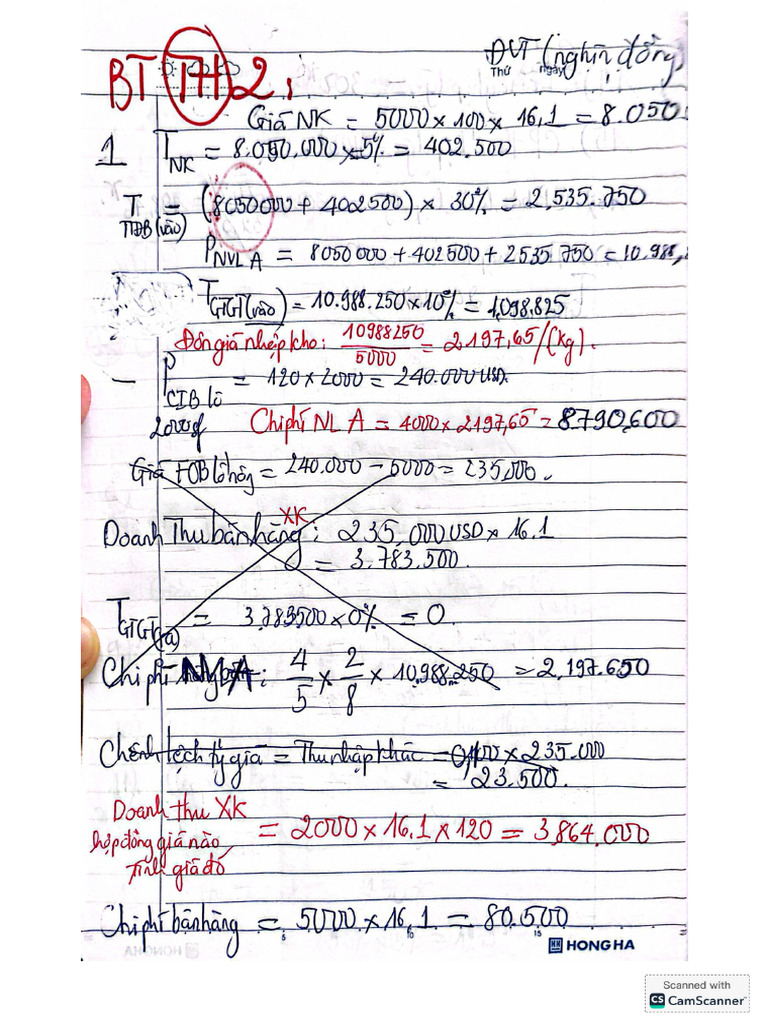 BT TH 2:
ĐVT (nghìn đồng)
Thứ ngày
Giá NK = 5000 × 100 × 16,1 = 8.050
1 T NK = 8.050.000 × 5% = 402.500
T TTĐB (vào) = (8050000 + 402500) × 30% = 2,535.750
P NVL A = 8050000 + 402500 + 2535750 = 10.988,
T GTGT (vào) = 10.988.250 × 10% = 1,098.825
Đơn giá nhập kho: 10988250 / 5000 = 2197,65/(kg).
– P CIB lô 2000sf = 120 × 2000 = 240.000 USD.
Chi phí NL A = 4000 × 2197,65 = 8790,600
Giá FOB lô hàng = 240.000 – 5000 = 235,000.
Doanh Thu bán hàng XK : 235,000 USD × 16.1
= 3.783.500.
T GTGT (ra) = 3.783500 × 0% = 0.
Chi phí NVL A : 4/5 × 2/8 × 10.988.250 = 2,197.650
Chênh lệch tỷ giá = Thu nhập khác = 0,100 × 235.000
= 23.500.
Doanh thu XK
hợp đồng giá nào
Tính giá đó
= 2000 × 16.1 × 120 = 3,864.000
Chi phí bán hàng = 5000 × 16,1 = 80.500
5 10 15
HONG HA
Scanned with
CS CamScanner